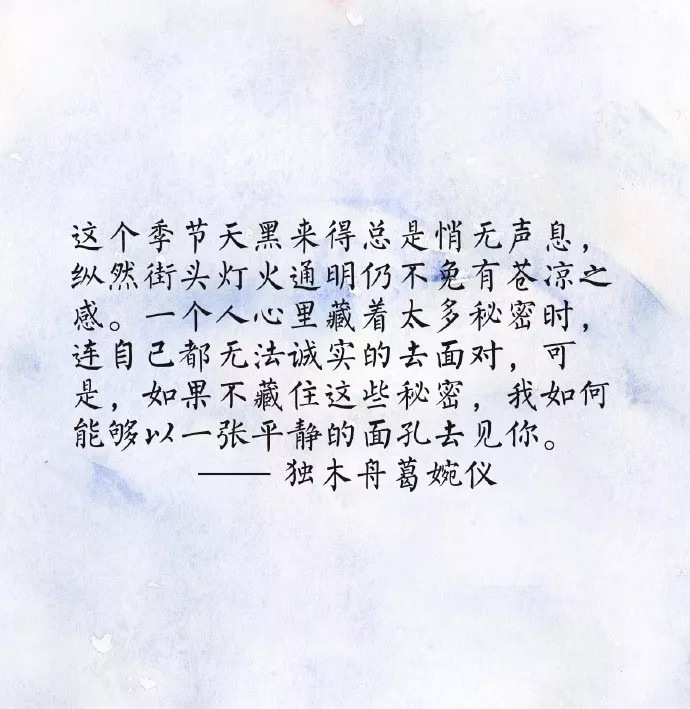 这个季节天黑来得总是悄无声息，
纵然街头灯火通明仍不免有苍凉之
感。一个人心里藏着太多秘密时，
连自己都无法诚实的去面对，可
是，如果不藏住这些秘密，我如何
能够以一张平静的面孔去见你。
—— 独木舟葛婉仪